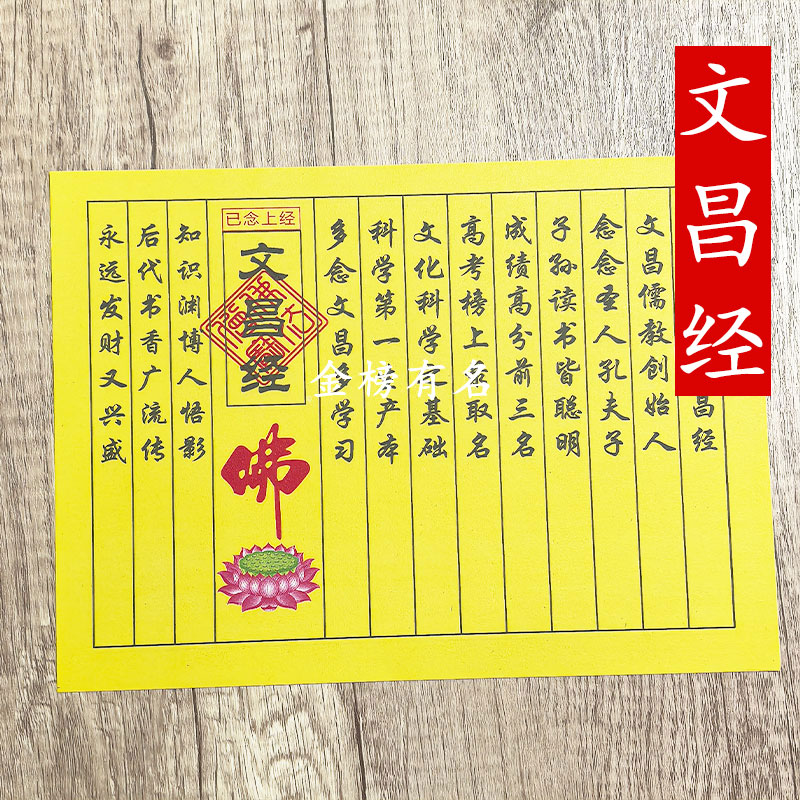 文昌经
昌经
文昌儒教创始人
念念圣人孔夫子
子孙读书皆聪明
成绩高分前三名
高考榜上取名
文化科学基础
科学第一产本
多念文昌多学习
已念上经
文昌经
佛
知识渊博人悟影
后代书香广流传
永远发财又兴盛
金榜有名